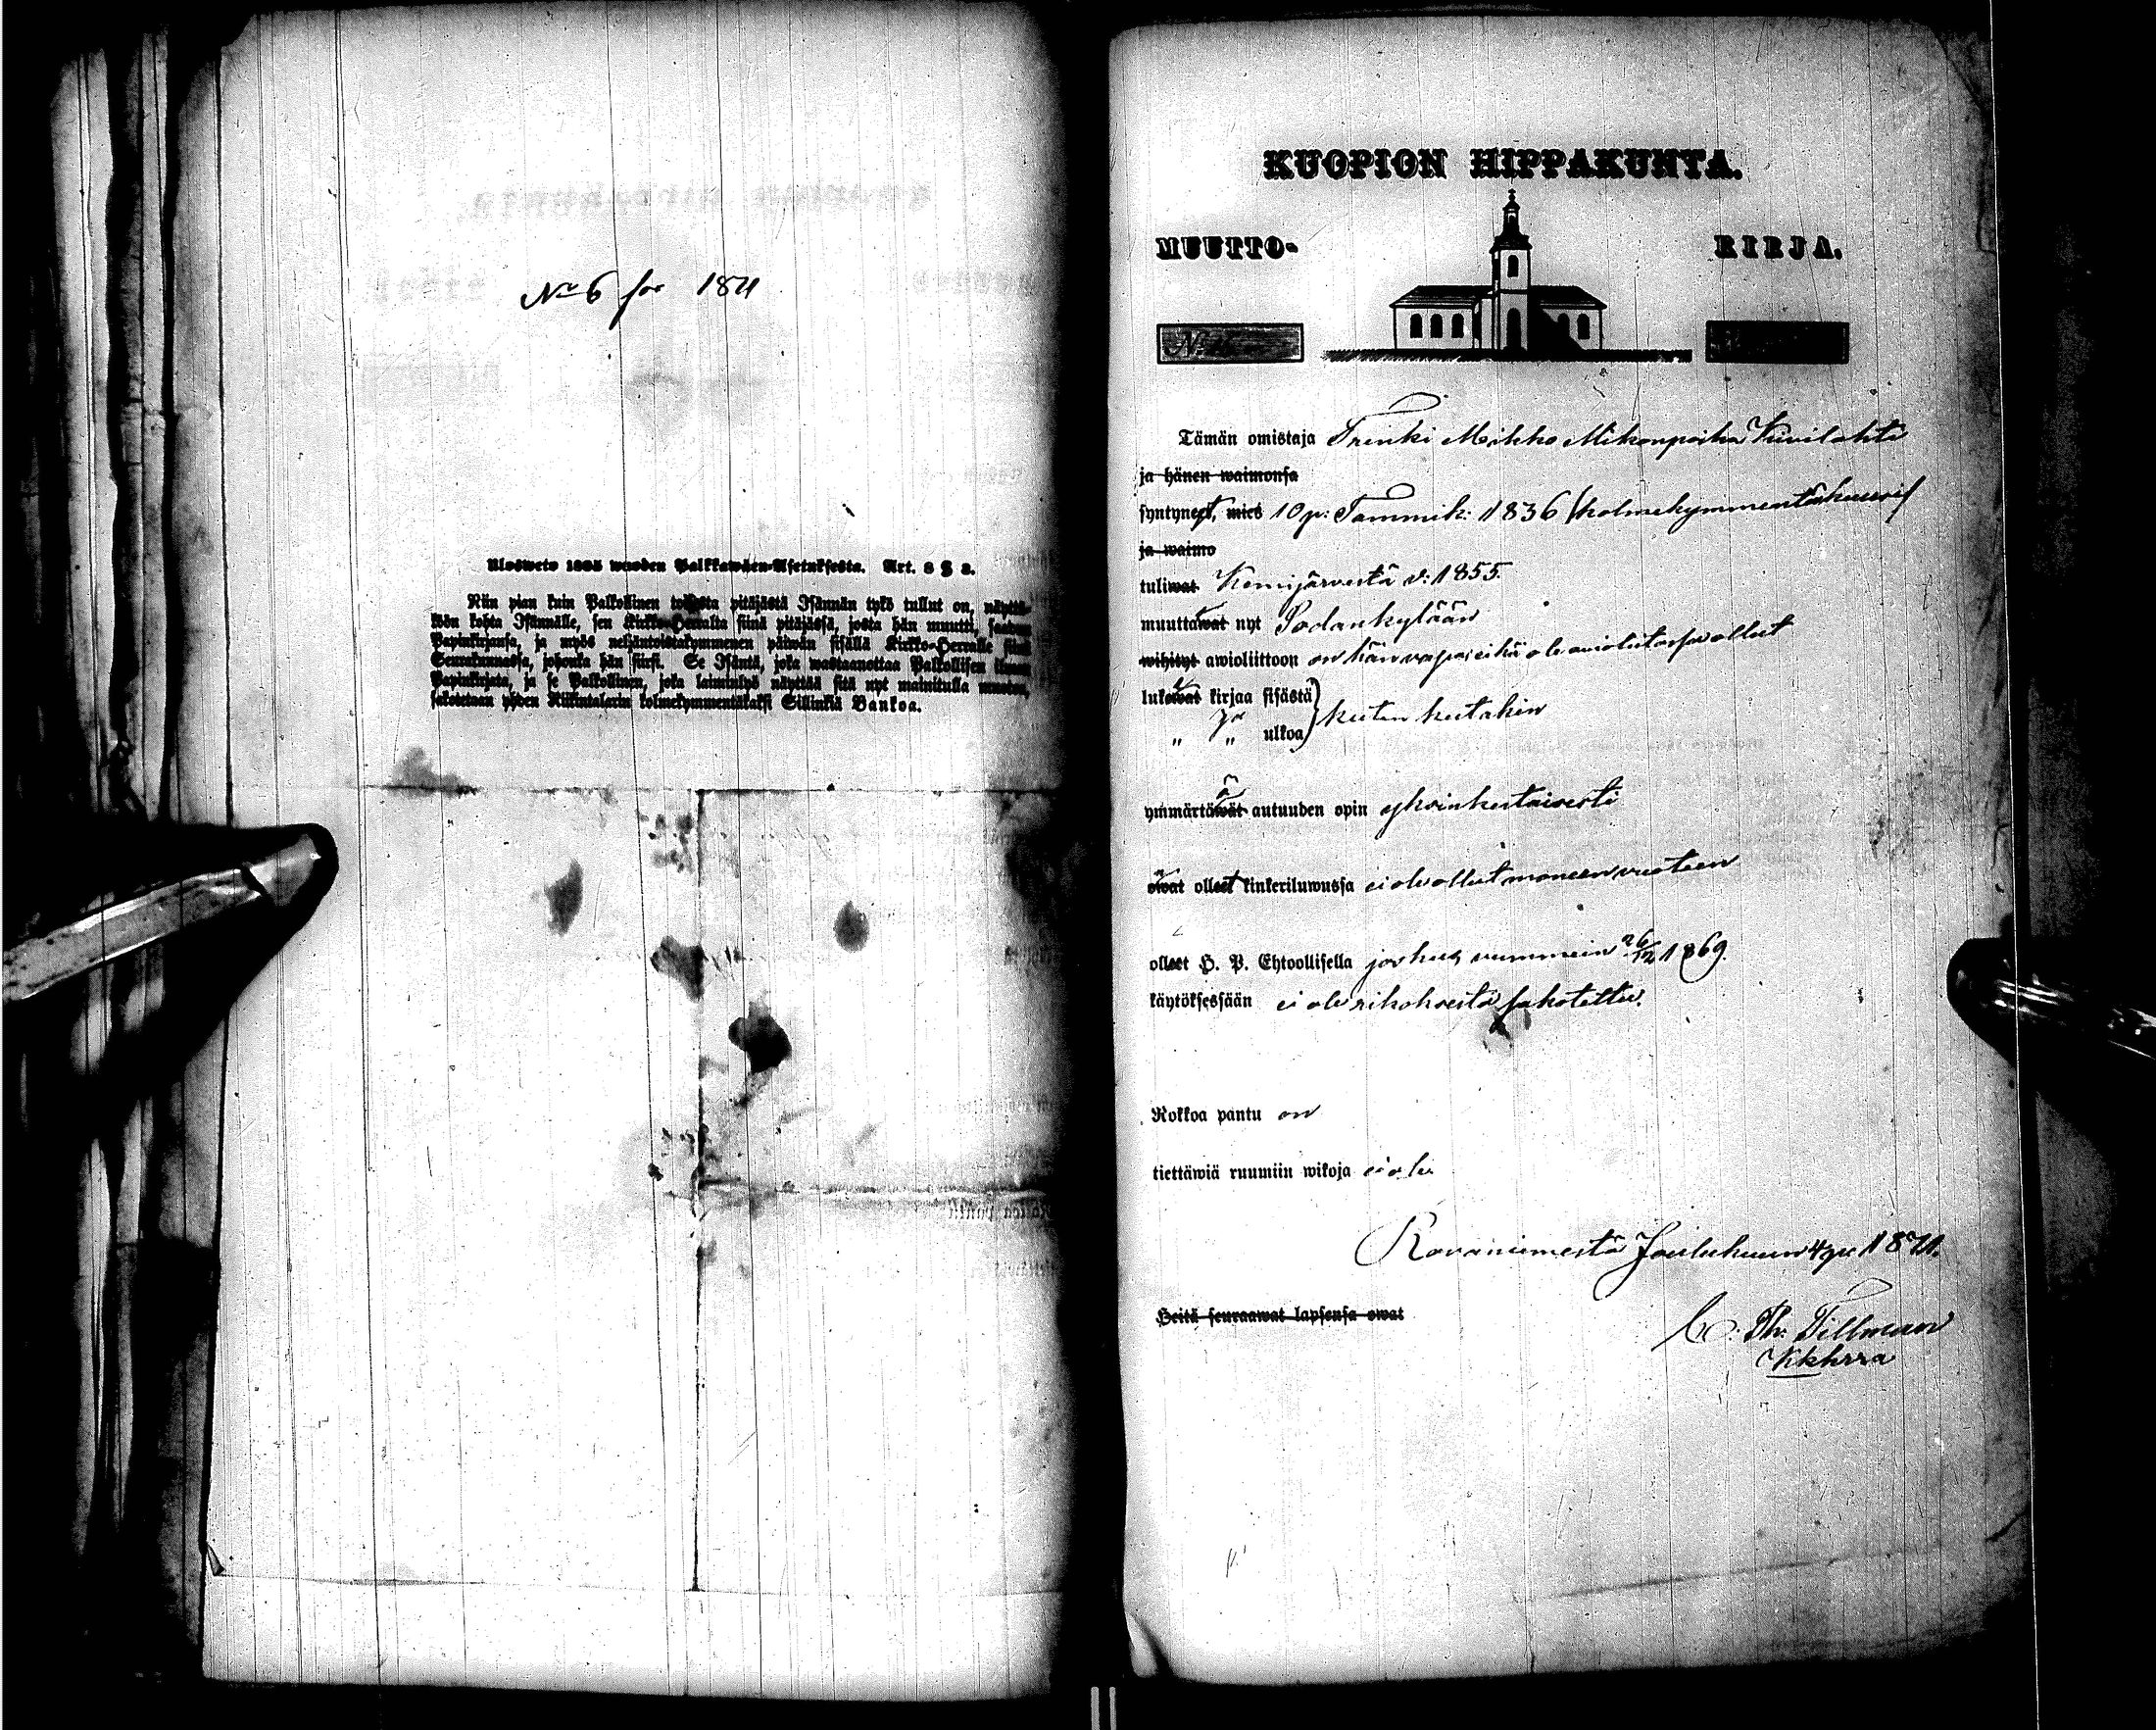 No 6 for 1871
Ulosweto 1805 wuoden Palkkawäen-Asetuksesta. Art. 8 § 3.
Niin pian kuin Palkollinen toisesta pitäjästä Isännän tykö tullut on, näyttä-
köön kohta Isännälle, sen Kirkko-Herralta siinä pitäjässä, josta hän muutti, saatun
Papinkirjansa, ja myös neljäntoistakymmenen päiwän sisällä Kirkko-Herralle siinä
Seurakunnassa, johonka hän siirsi. Se Isäntä, joka wastaanottaa Palkollisen ilman
Papinkirjata, ja se Palkollinen, joka laiminlyö näyttää sitä nyt mainitulla muoton,
sakotetaan yhden Riikintalarin kolmekymmentäkaksi Sillinkiä Bankoa.
KUOPION HIPPAKUNTA.
MUUTTO- KIRJA.
No
Tämän omistaja Trenki Mikko Mikonpoika Kivilahti
ja hänen waimonsa
syntynyt, mies 10 p: Tammik: 1836 /kolmekymmentäkuusi/
ja waimo
tuliwat Kemijärvestä v: 1855.
muuttawat nyt Sodankylään
wihityt awioliittoon on hän vapa; eikä ole aviolutassa ollut
lukewat kirjaa sisästä
" ja " ulkoa } kuten kutakin
ymmärtäwät autuuden opin yksinkertaisesti
owat olleet kinkeriluwussa ei ole ollut moneen vuoteen
olleet H. P. Ehtoollisella 26/12 1869.
käytöksessään ei ole rikoksesta sakotettu.
Rokkoa pantu on
tiettäwiä ruumiin wikoja ei ole
Rovaniemestä Joulukuun 4 p: 1871.
Heitä seuraawat lapsensa owat
C. Th. Tillman
Kkhrra